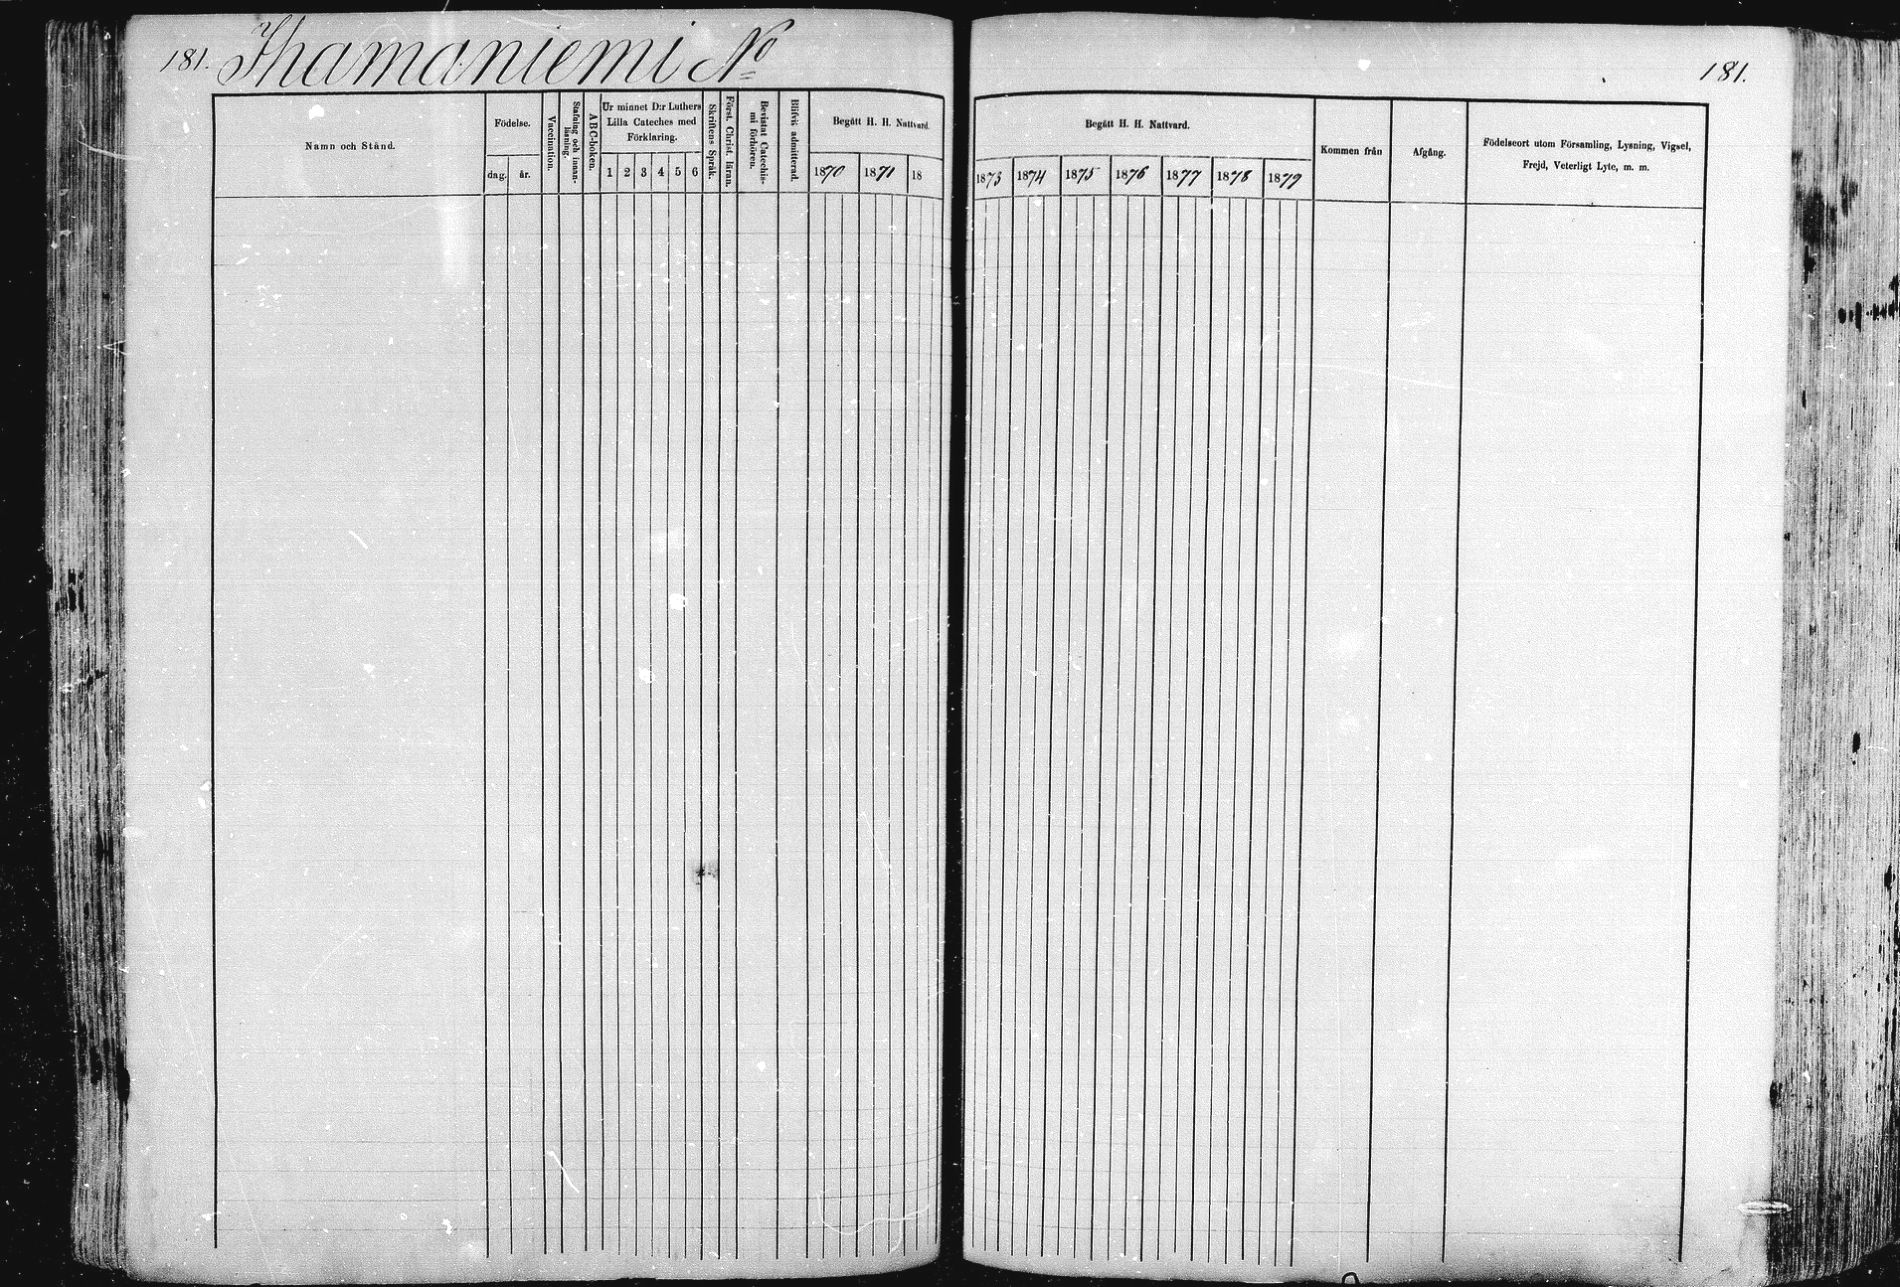 181. Ihamaniemi No
181.
Namn och Stånd.
Födelse.
dag. år.
Vaccination.
Stafning och innan-
läsning.
ABC-boken.
Ur minnet D:r Luthers
Lilla Cateches med
Förklaring.
1 2 3 4 5 6
Skriftens Språk.
Först. Christ. läran.
Bevistat Catechis-
mi förhören.
Blifvit admitterad.
Begått H. H. Nattvard.
1870 1871 18
Begått H. H. Nattvard.
1873 1874 1875 1876 1877 1878 1879
Kommen från
Afgång.
Födelseort utom Församling, Lysning, Vigsel,
Frejd, Veterligt Lyte, m. m.